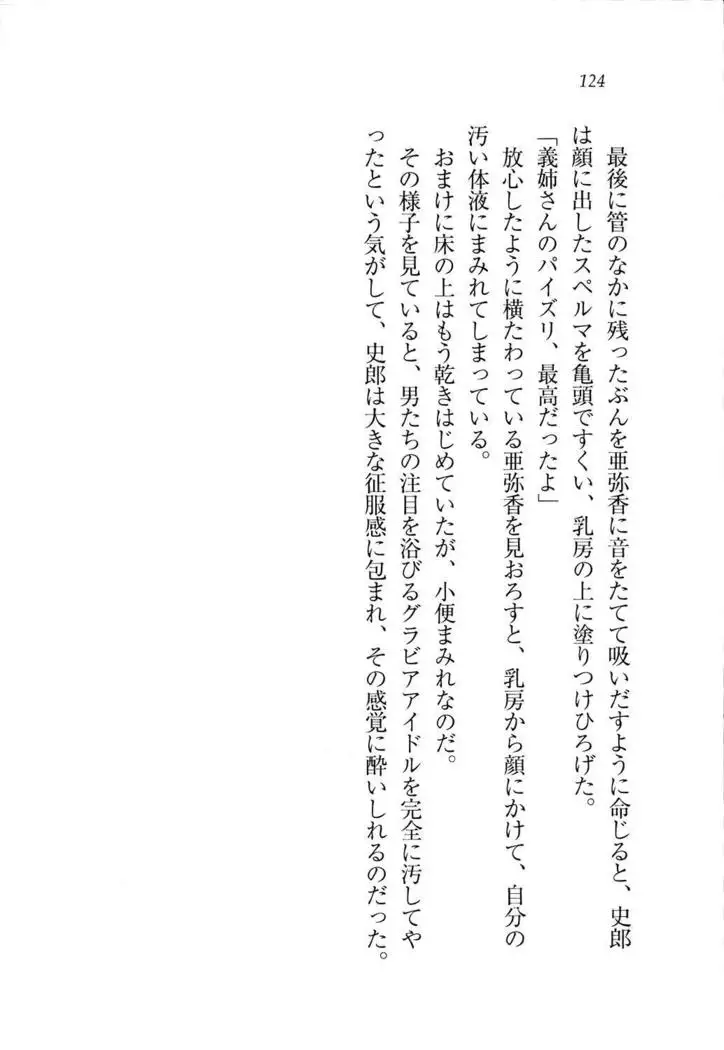 124
最後に管のなかに残ったぶんを亜弥香に音をたてて吸いだすように命じると、史郎
は顔に出したスペルマを亀頭ですくい、乳房の上に塗りつけひろげた。
「義姉さんのパイズリ、最高だったよ」
放心したように横たわっている亜弥香を見おろすと、乳房から顔にかけて、自分の
汚い体液にまみれてしまっている。
おまけに床の上はもう乾きはじめていたが、小便まみれなのだ。
その様子を見ていると、男たちの注目を浴びるグラビアアイドルを完全に汚してや
ったという気がして、史郎は大きな征服感に包まれ、その感覚に酔いしれるのだった。